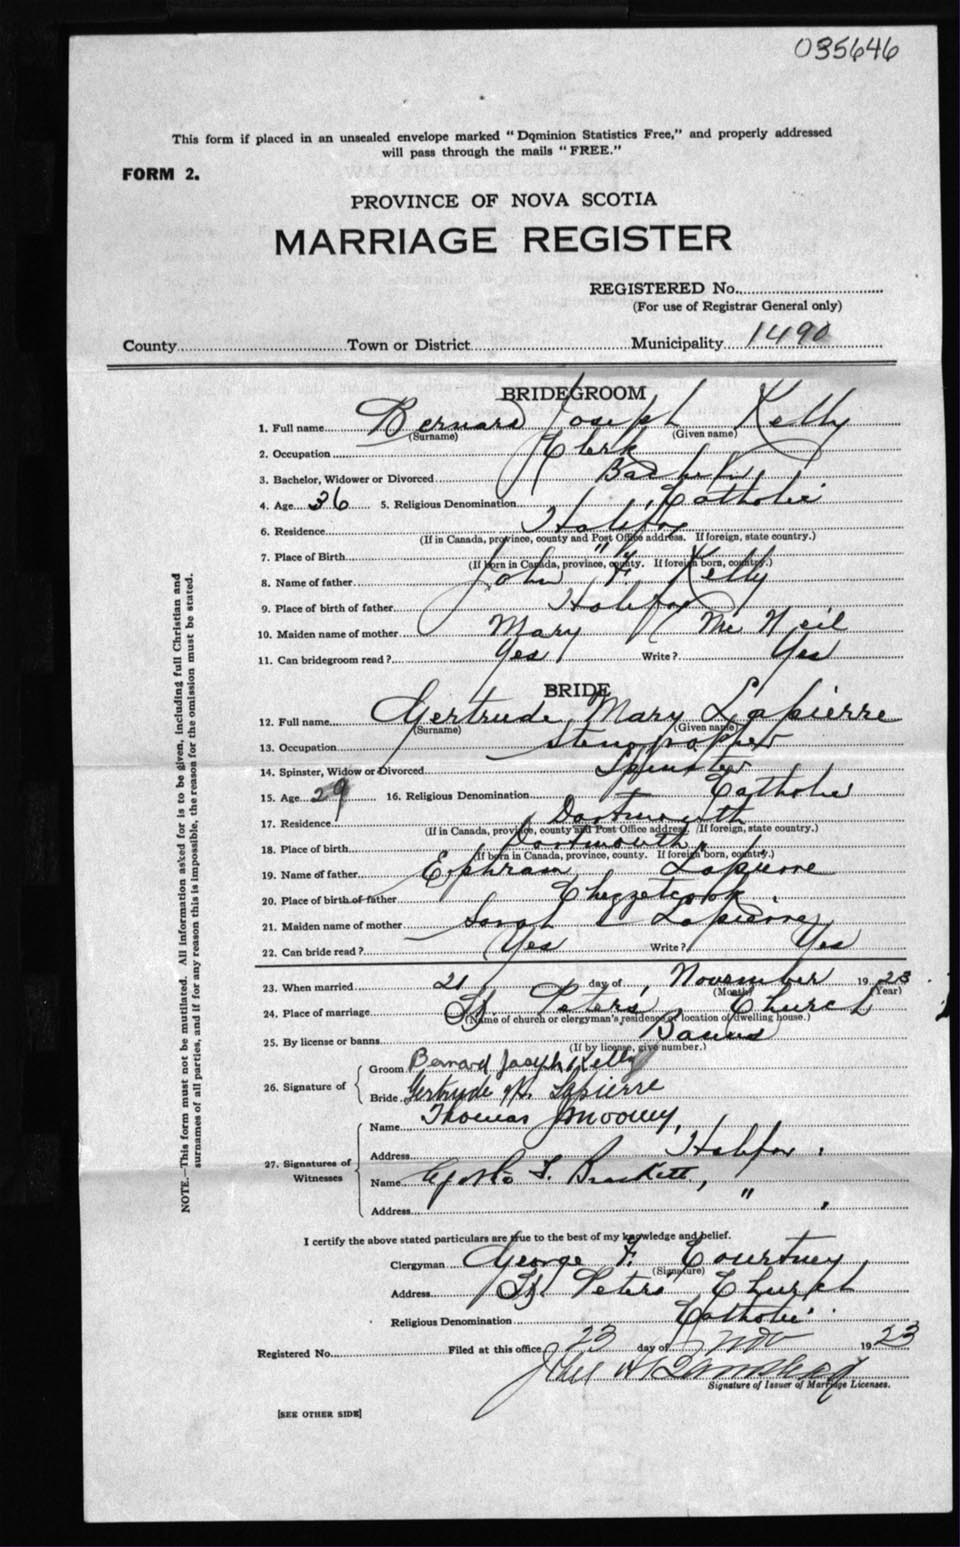 035646
This form if placed in an unsealed envelope marked "Dominion Statistics Free," and properly addressed
will pass through the mails "FREE."
FORM 2.
PROVINCE OF NOVA SCOTIA
MARRIAGE REGISTER
REGISTERED No.
(For use of Registrar General only)
County Town or District Municipality 1490
BRIDEGROOM
1. Full name Bernard Joseph Kelly
(Surname) (Given name)
2. Occupation Clerk
3. Bachelor, Widower or Divorced Bachelor
4. Age 36 5. Religious Denomination Catholic
6. Residence Halifax
(If in Canada, province, county and Post Office address. If foreign, state country.)
7. Place of Birth " "
(If born in Canada, province, county. If foreign born, country.)
8. Name of father John F. Kelly
9. Place of birth of father Halifax
10. Maiden name of mother Mary McNeil
11. Can bridegroom read? Yes Write? Yes
BRIDE
12. Full name Gertrude Mary Lapierre
(Surname) (Given name)
13. Occupation Stenographer
14. Spinster, Widow or Divorced Spinster
15. Age 29 16. Religious Denomination Catholic
17. Residence Dartmouth
(If in Canada, province, county and Post Office address. If foreign, state country.)
18. Place of birth Dartmouth
(If born in Canada, province, county. If foreign born, country.)
19. Name of father Ephram Lapierre
20. Place of birth of father Chezzetcook
21. Maiden name of mother Sarah Lapierre
22. Can bride read? Yes Write? Yes
23. When married 21 day of November 1923
(Month) (Year)
24. Place of marriage St. Peters Church
(Name of church or clergyman's residence or location of dwelling house.)
25. By license or banns Banns
(If by license, give number.)
26. Signature of Groom Bernard Joseph Kelly
Bride Gertrude M. Lapierre
27. Signatures of Witnesses
Name Thomas J Mooney,
Address Halifax
Name Brackett,
Address "
I certify the above stated particulars are true to the best of my knowledge and belief.
Clergyman George F. Courtney
(Signature)
Address St Peters Church
Religious Denomination Catholic
Registered No. Filed at this office 23 day of Nov 1923
Signature of Issuer of Marriage Licenses.
[SEE OTHER SIDE]
NOTE.—This form must not be mutilated. All information asked for is to be given, including full Christian and
surnames of all parties, and if for any reason this is impossible, the reason for the omission must be stated.